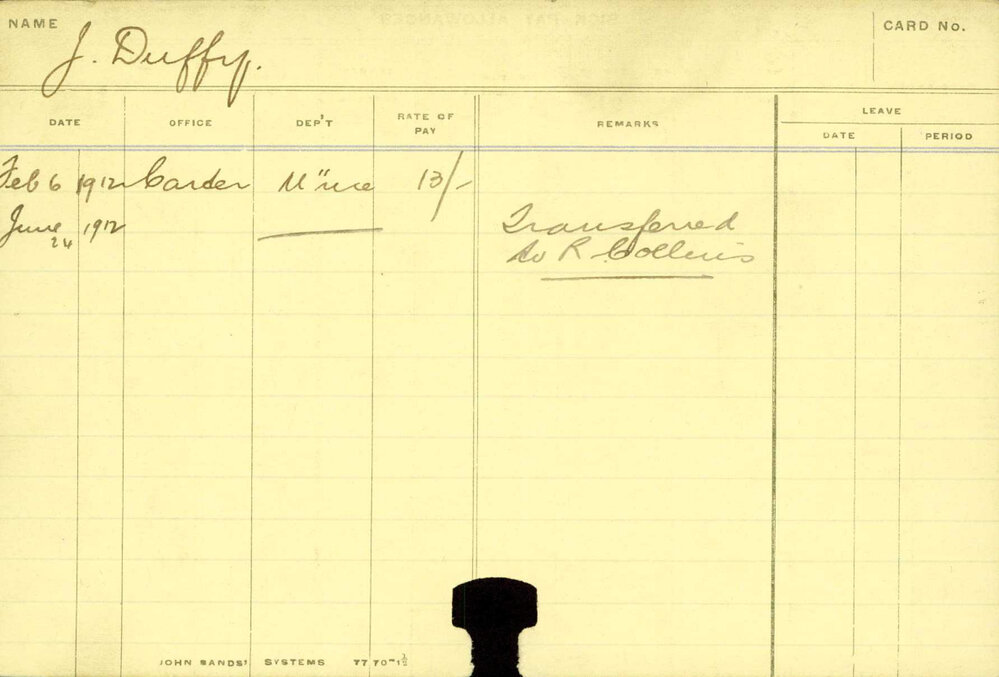 NAME
J. Duffy.
CARD No.
DATE OFFICE DEP'T RATE OF PAY REMARKS LEAVE
DATE PERIOD
Feb 6 1912 Carder 13/-
June 24 1912 Transferred
to R Collins
JOHN SANDS' SYSTEMS 7770-1½